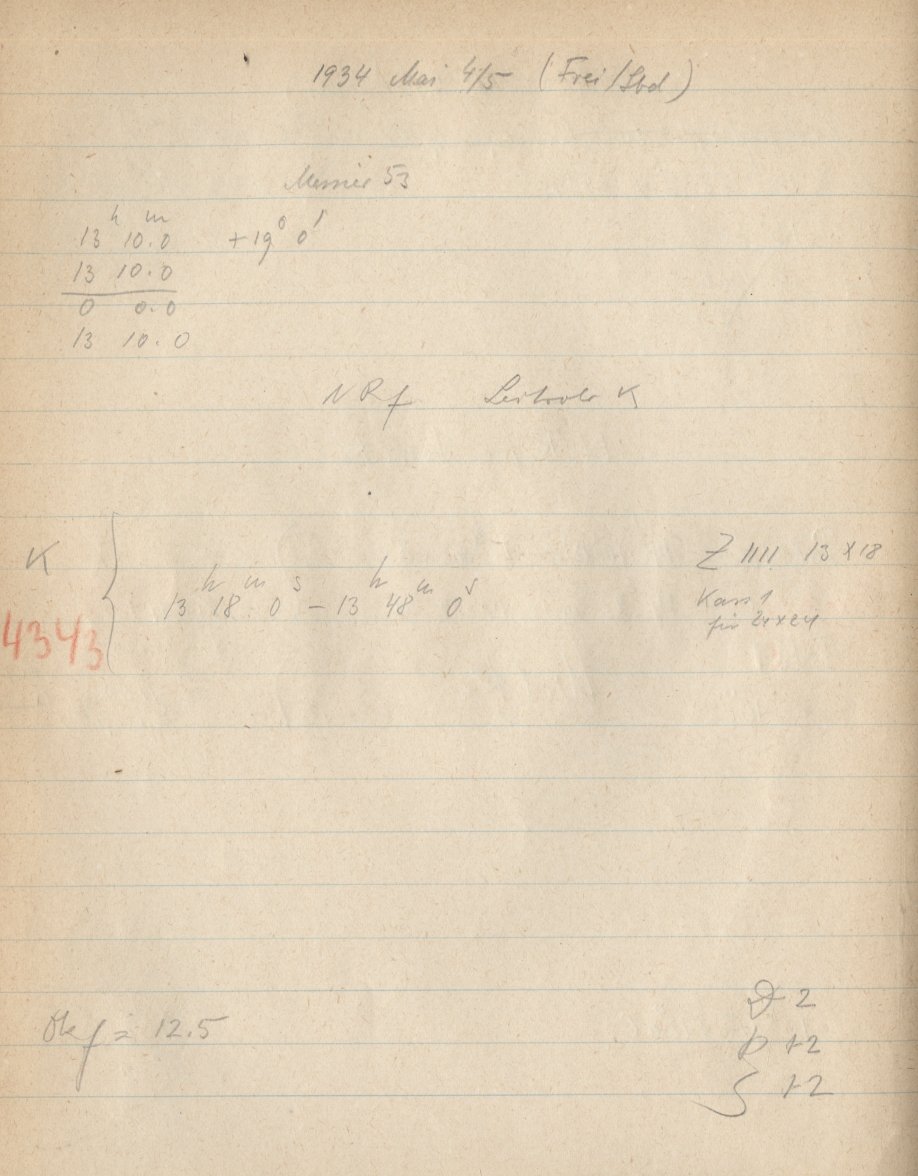 1934 Mai 4/5 (Frei/Sbd)
Messier 53
h m
13 10.0 +19° 0'
13 10.0
0 0.0
13 10.0
NRf Leitrohr K
K
h m s h m s
13 18 0 – 13 48 0
Z IIII 13 x 18
Kass 1
für 24x24
4343
Ok f = 12.5
D 2
P +2
S +2